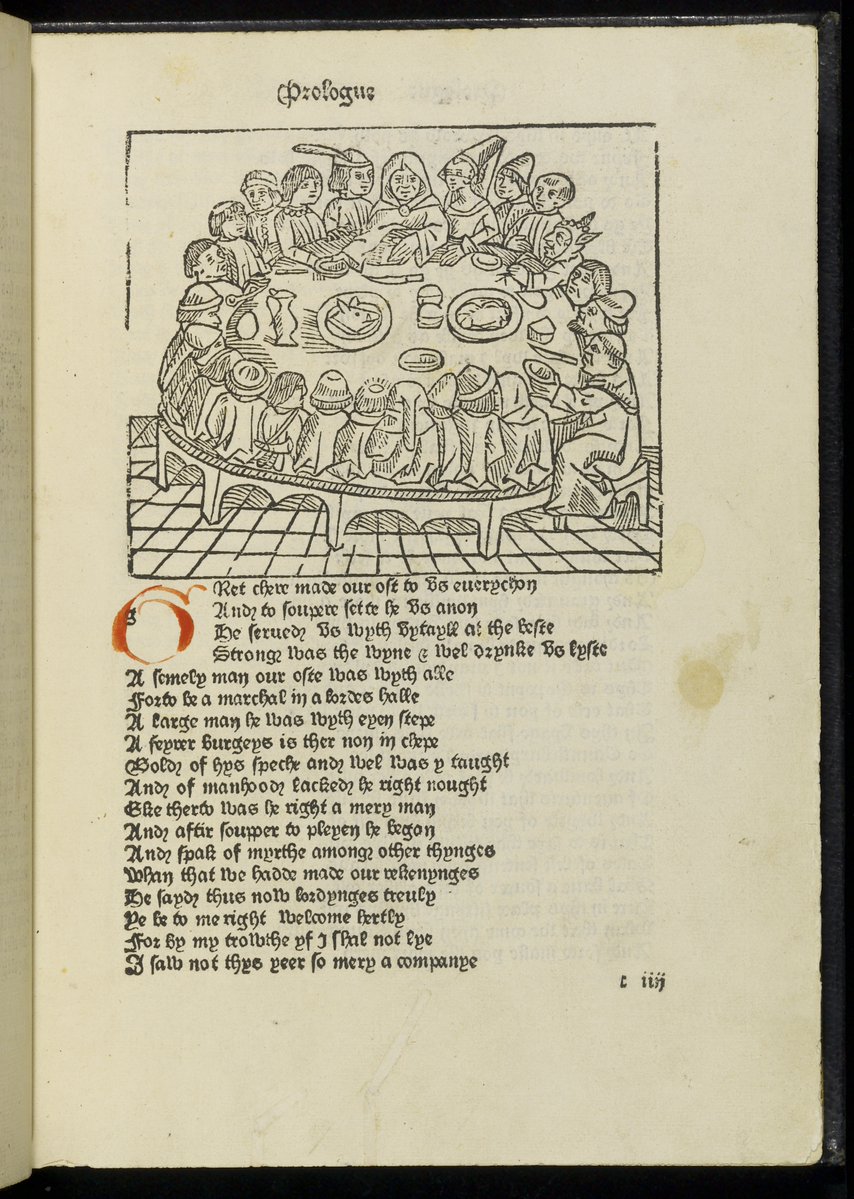 Prologue
g
GRet chere made our ost to vs euerychon
And to soupere sette he vs anon
He serued vs wyth vytayll at the beste
Strong was the wyne & wel drynke vs lyste
A semely man our oste was wyth alle
Forto be a marchal in a lordes halle
A large man he was wyth eyen stepe
A feyrer burgeys is ther non in chepe
Bold of hys speche and wel was y taught
And of manhood lacked he right nought
Eke therto was he right a mery man
And aftir soupper to pleyen he began
And spak of myrthe among other thynges
Whan that we hadde made our rekenynges
He sayd thus now lordynges treuly
Ye be to me right welcome hertly
For by my trowthe yf I shal not lye
I saw not thys yeer so mery a companye
c iiij